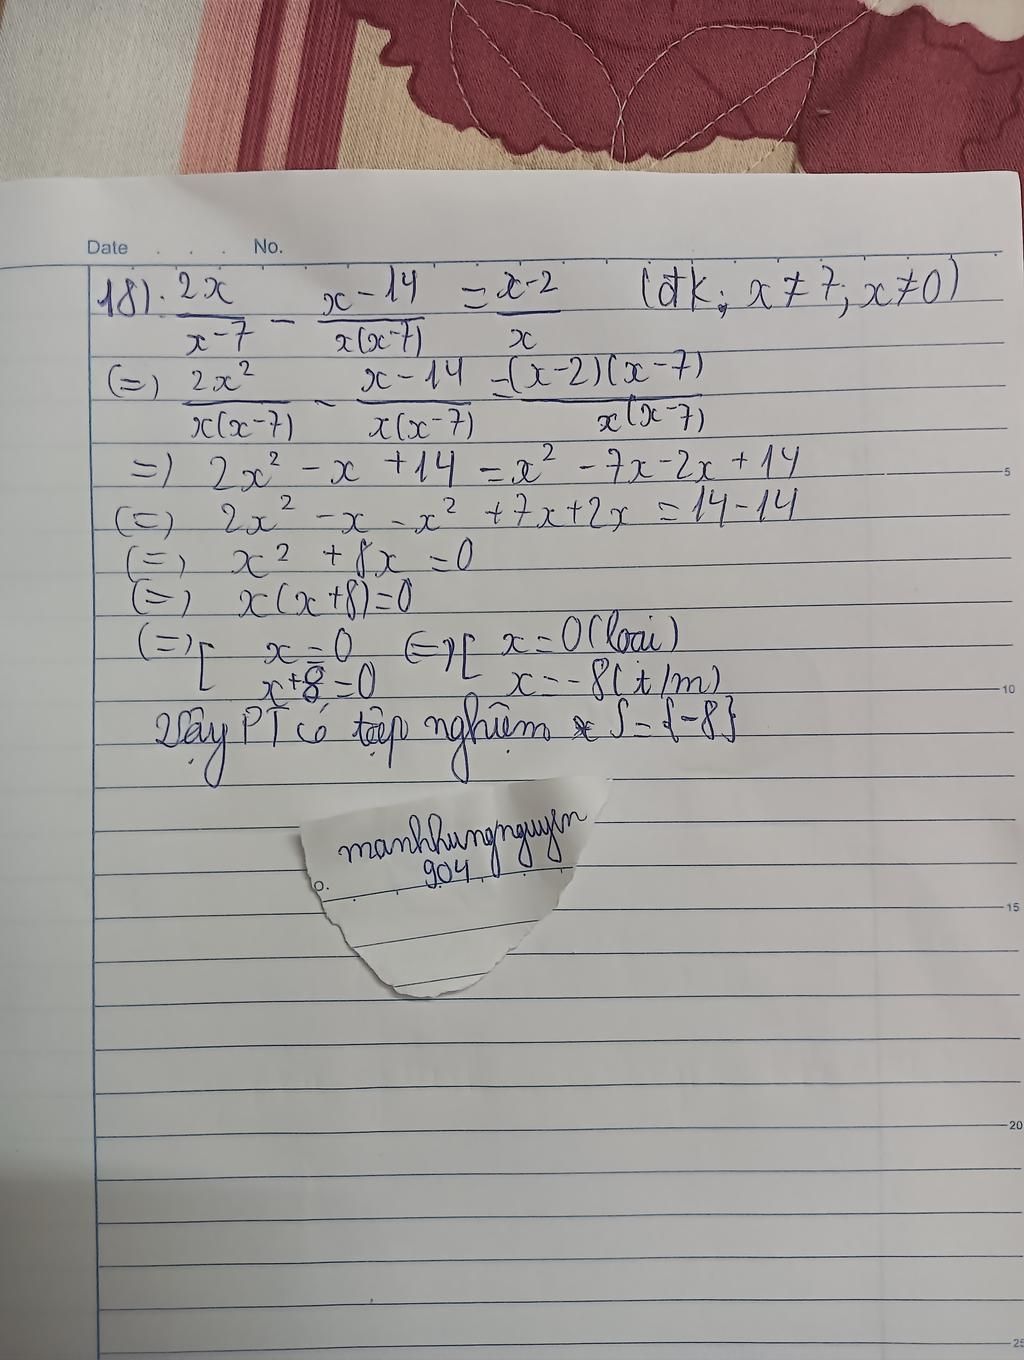 Date . . . No.
18). 2x/(x-7) - (x-14)/(x(x-7)) = (x-2)/x (đk; x≠7; x≠0)
(=) 2x²/(x(x-7)) - (x-14)/(x(x-7)) = (x-2)(x-7)/(x(x-7))
=) 2x² - x + 14 = x² - 7x - 2x + 14
(=) 2x² - x - x² + 7x + 2x = 14 - 14
(=) x² + 8x = 0
(=) x(x+8) = 0
(=) [ x = 0 (=) [ x = 0 (loại)
x + 8 = 0 x = -8 (t/m)
Vậy PT có tập nghiệm S = {-8}
manhhungnguyen
904
o.
5
10
15
20
25